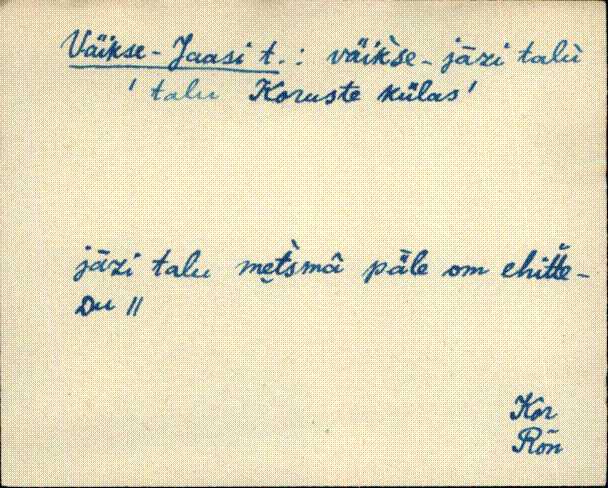 Väikse-Jaasi t.: väikse-jāzi talù
'talu Koruste külas'
jāzi talu metsmâ päle om ehitte-
Du ||
Kor
Rõn